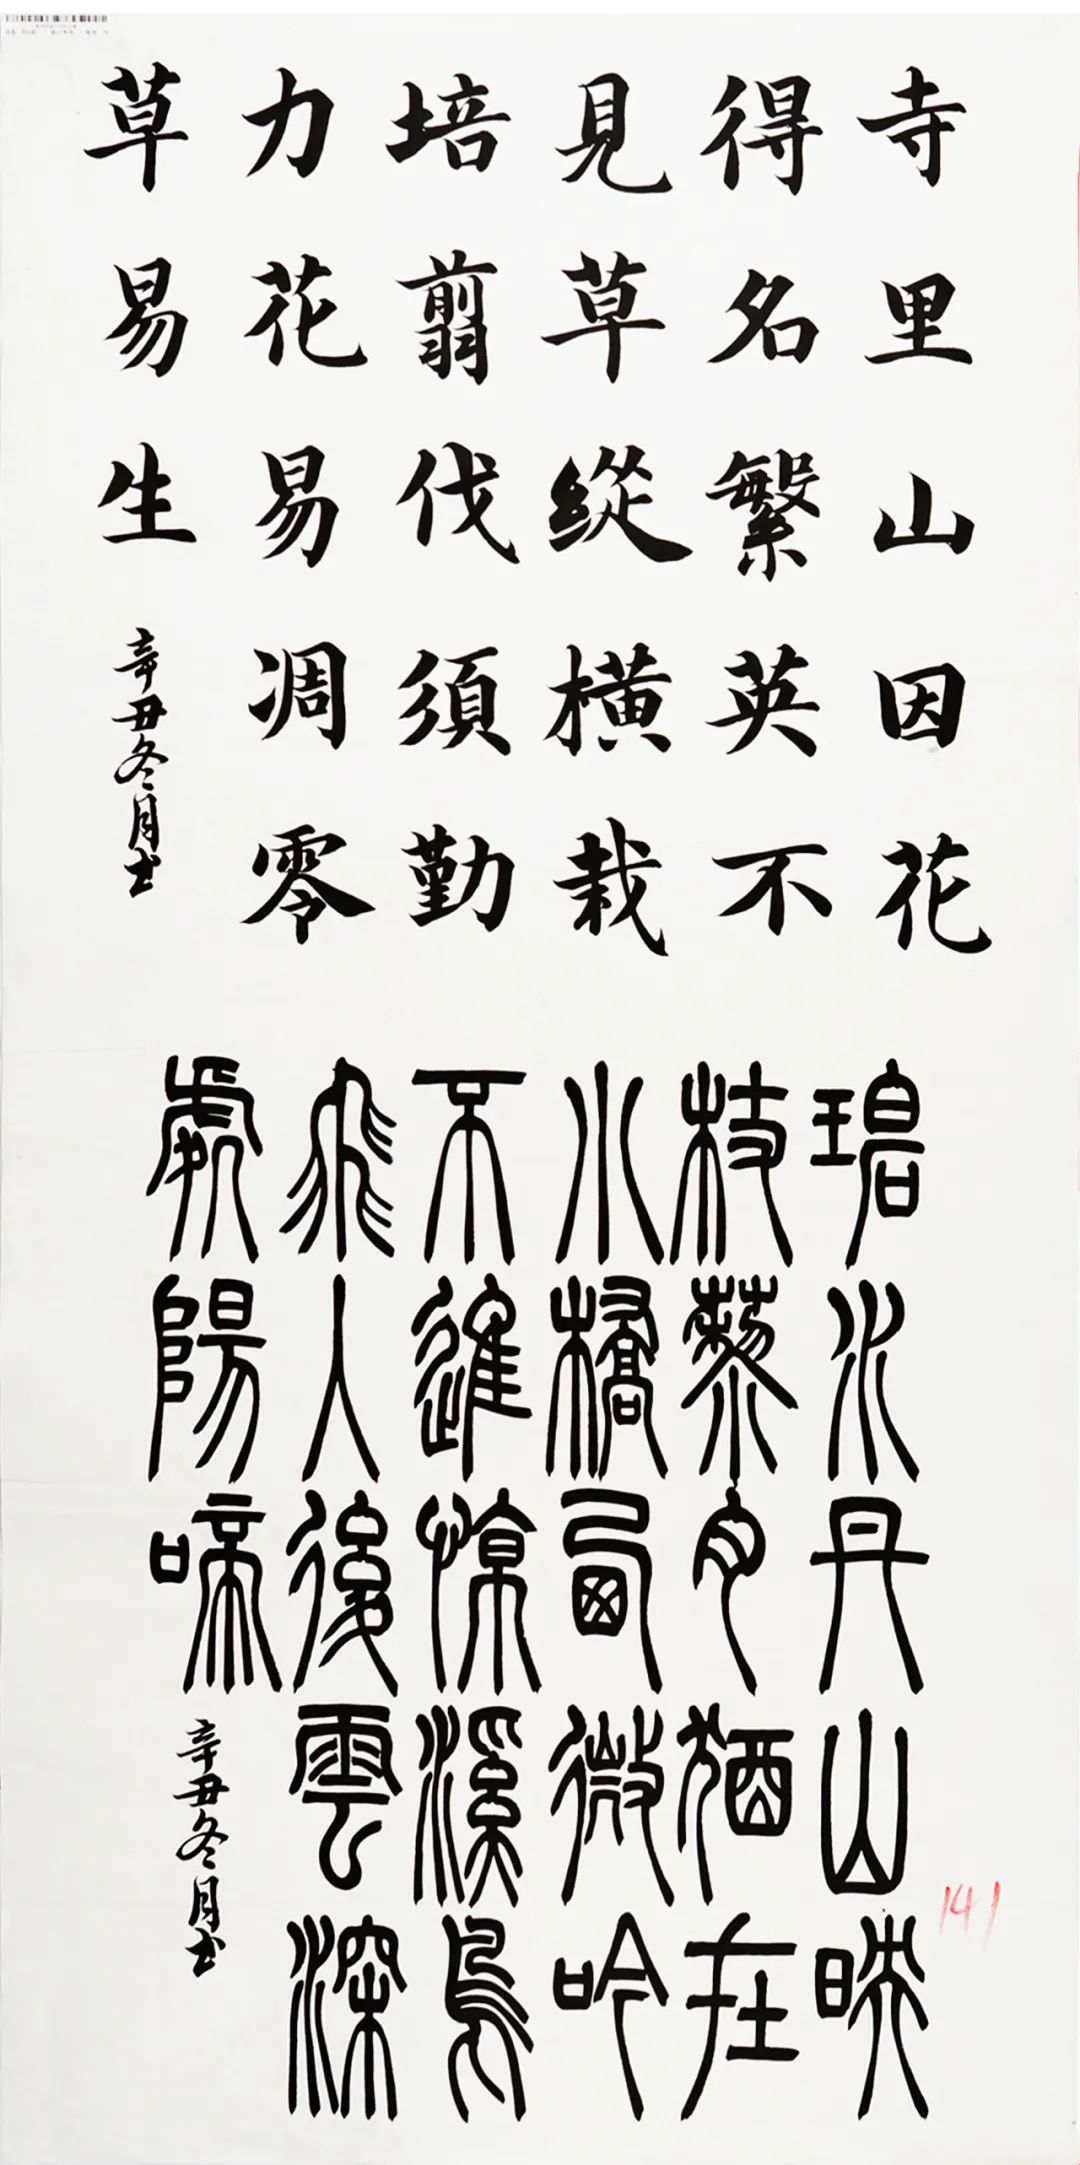 寺里山因花
得名繁英不
見草縱橫栽
培翦伐須勤
力花易凋零
草易生
辛丑冬月书
碧水丹山映
杖藜夕猶在
小橋西微吟
不進惊溪鳥
飛入後雲深
處陽啼
辛丑冬月书
141